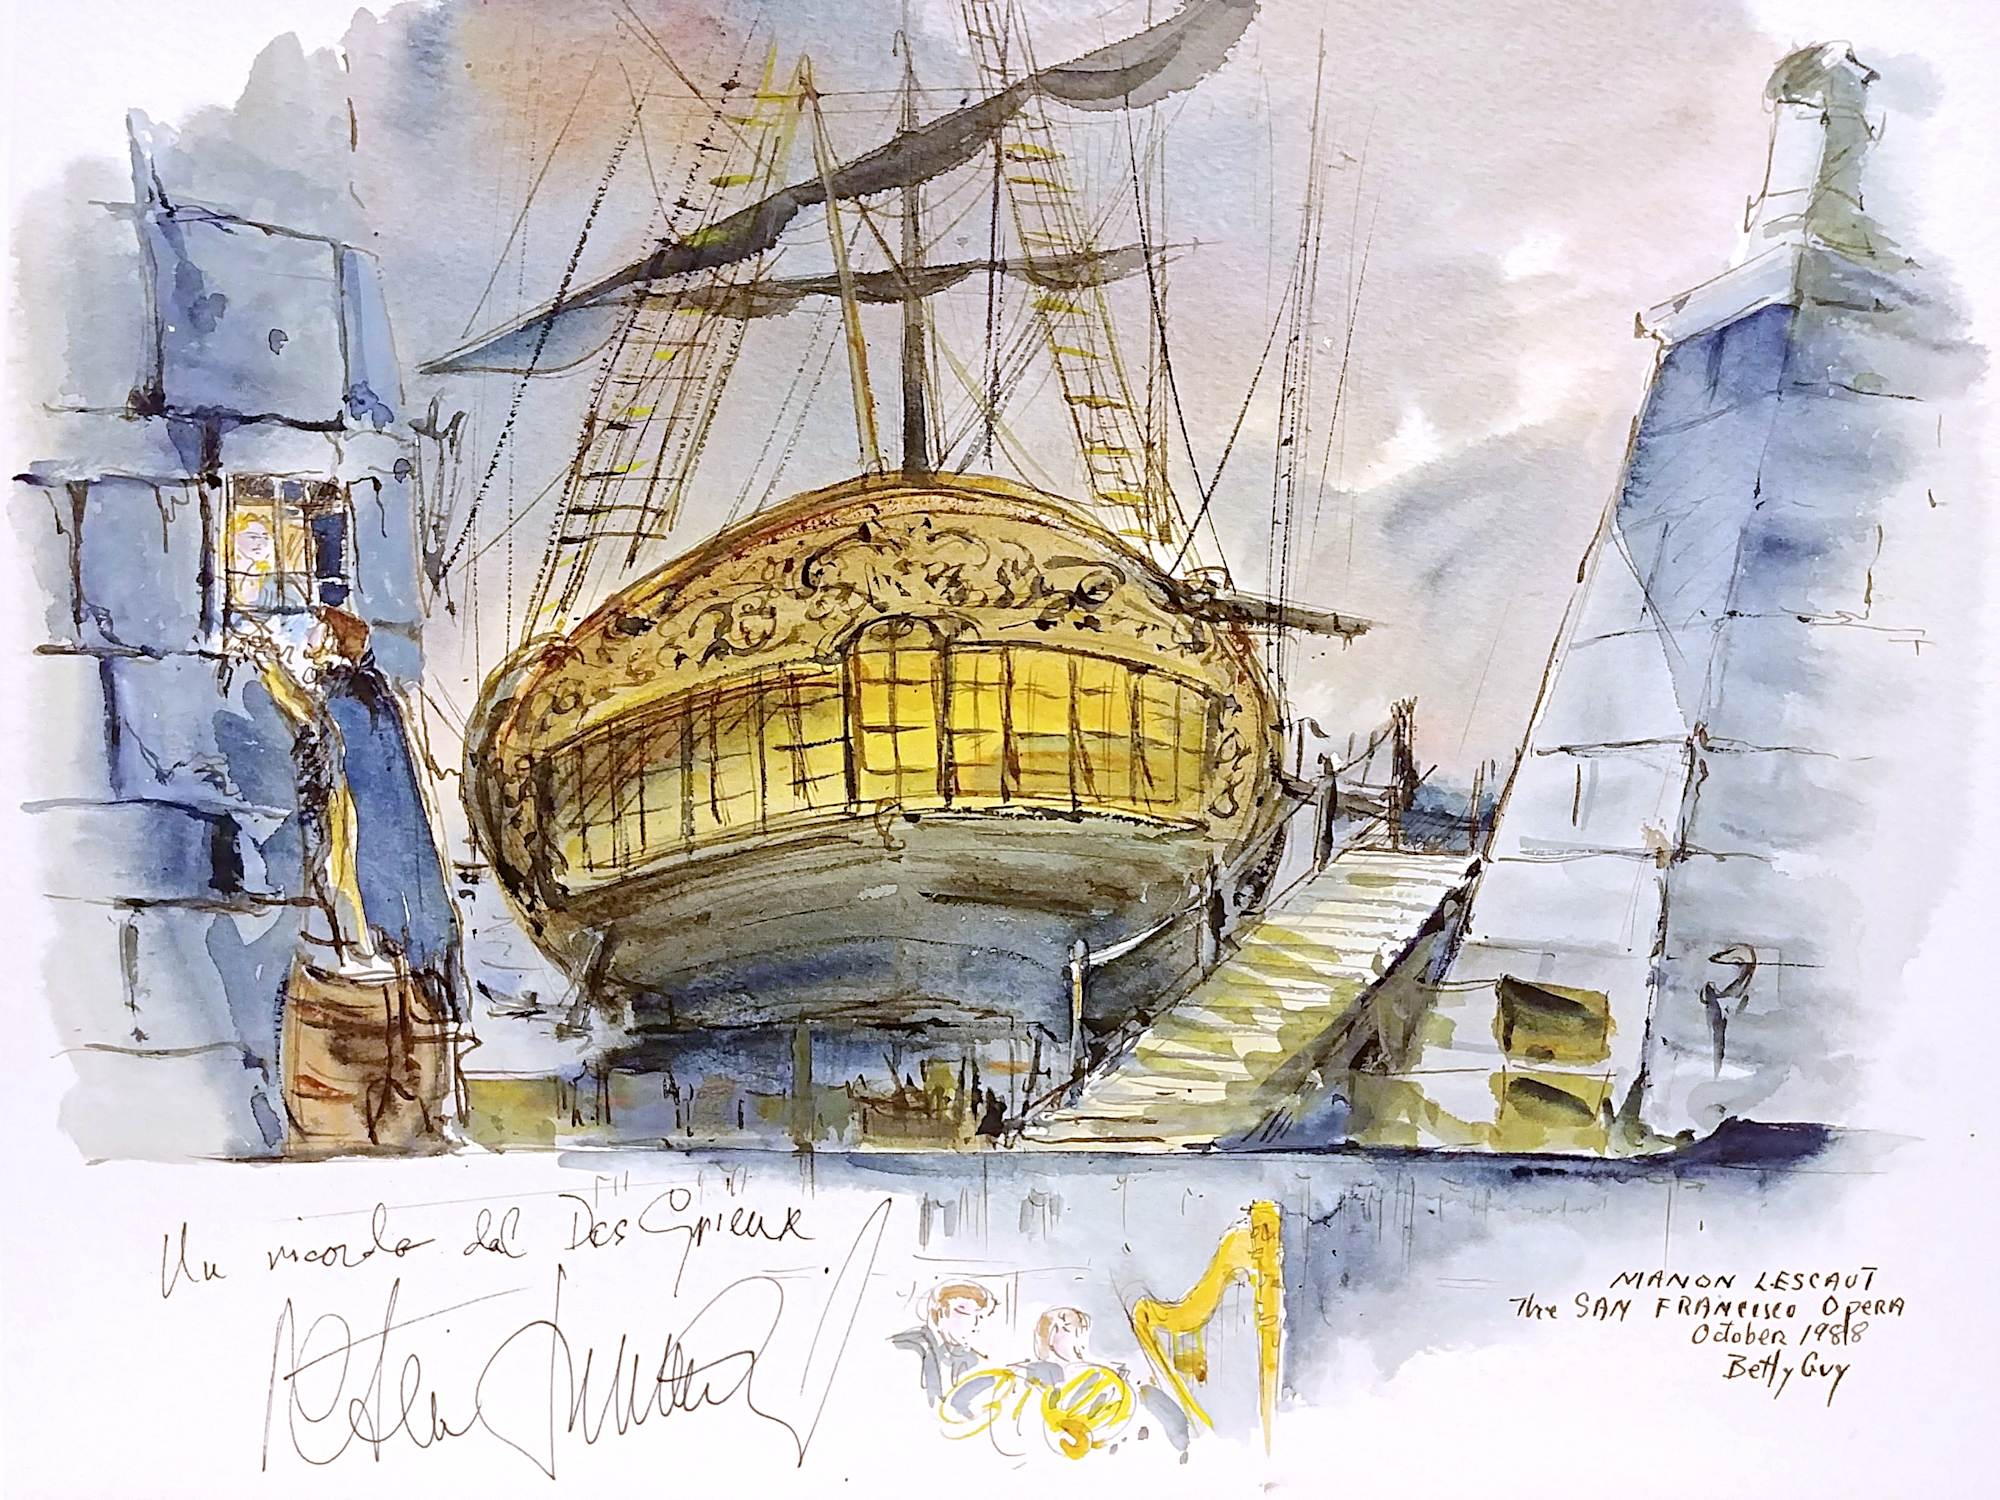 Un ricordo dal Des Grieux
MANON LESCAUT
The SAN FRANCISCO OPERA
October 1988
Betty Guy